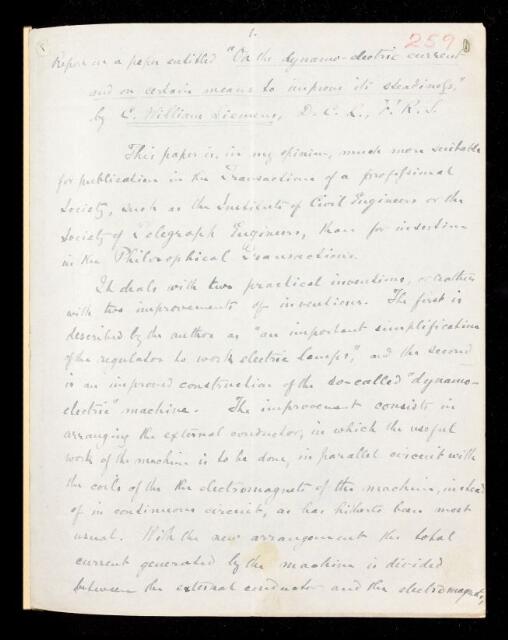 1.
259
Report on a paper entitled "On the dynamo-electric current
and on certain means to improve its steadiness,"
by C. William Siemens, D. C. L., F. R. S.
This paper is, in my opinion, much more suitable
for publication in the Transactions of a professional
Society, such as the Institute of Civil Engineers or the
Society of Telegraph Engineers, than for insertion
in the Philosophical Transactions.
It deals with two practical inventions, or rather
with two improvements of inventions. The first is
described by the author as "an important simplification
of the regulator to work electric lamps", and the second
is an improved construction of the so-called "dynamo-
electric" machine. The improvement consists in
arranging the external conductor, in which the useful
work of the machine is to be done, in parallel circuit with
the coils of the the electromagnets of the machine, instead
of in continuous circuit, as has hitherto been most
usual. With the new arrangement the total
current generated by the machine is divided
between the external conductor and the electromagnets,